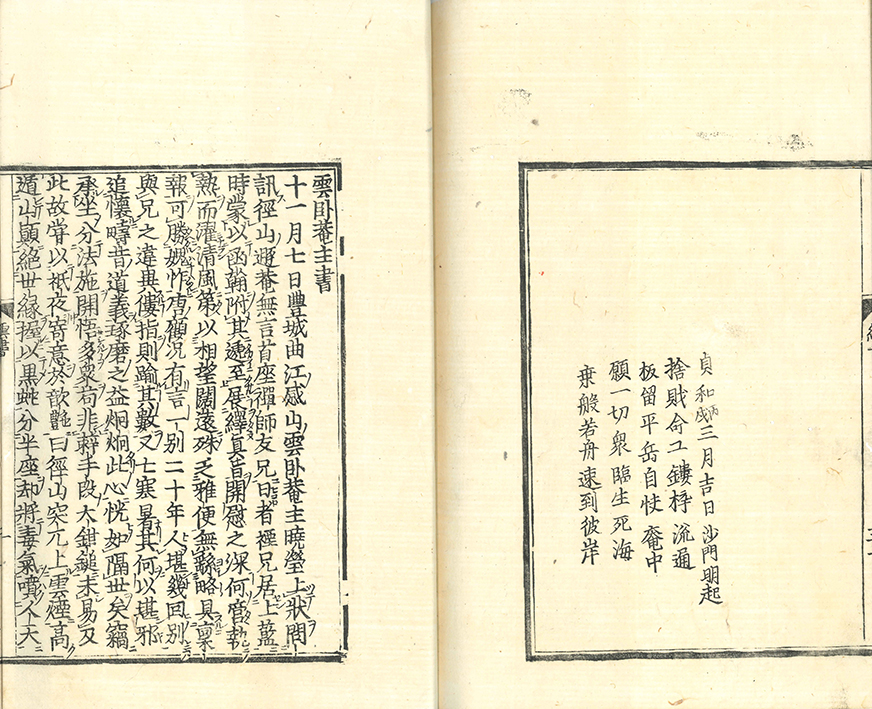 貞和丙戌三月吉日沙門明起
捨財命工鏤梓流通
板留平岳自快菴中
願一切衆臨生死海
乗般若舟速到彼岸
雲卧菴主書
十一月七日豐城曲江感山雲卧菴主曉瑩上狀問
訊徑山遯菴無言首座禪師友兄日者禋兄居上藍
時蒙以函翰附其逓至展繹真旨開慰之深何啻執
熱而濯清風第以相望闊遠殊乏雅便無繇略具稟
報可勝媿怍唐顧況有言一別二十年人堪幾回別
與兄之違異僂指則踰其數又七寒暑其何以堪邪
追懷疇昔道義琢磨之益炯炯此心恍如隔世矣竊
承坐分法施開悟多衆苟非辣手段大鉗鎚未易及
此故甞以祇夜寄意於歆艷曰徑山突兀上雲煙高
遁山顛絶世緣握以黒蚖分半座却將毒氣噴人天
雲書
一